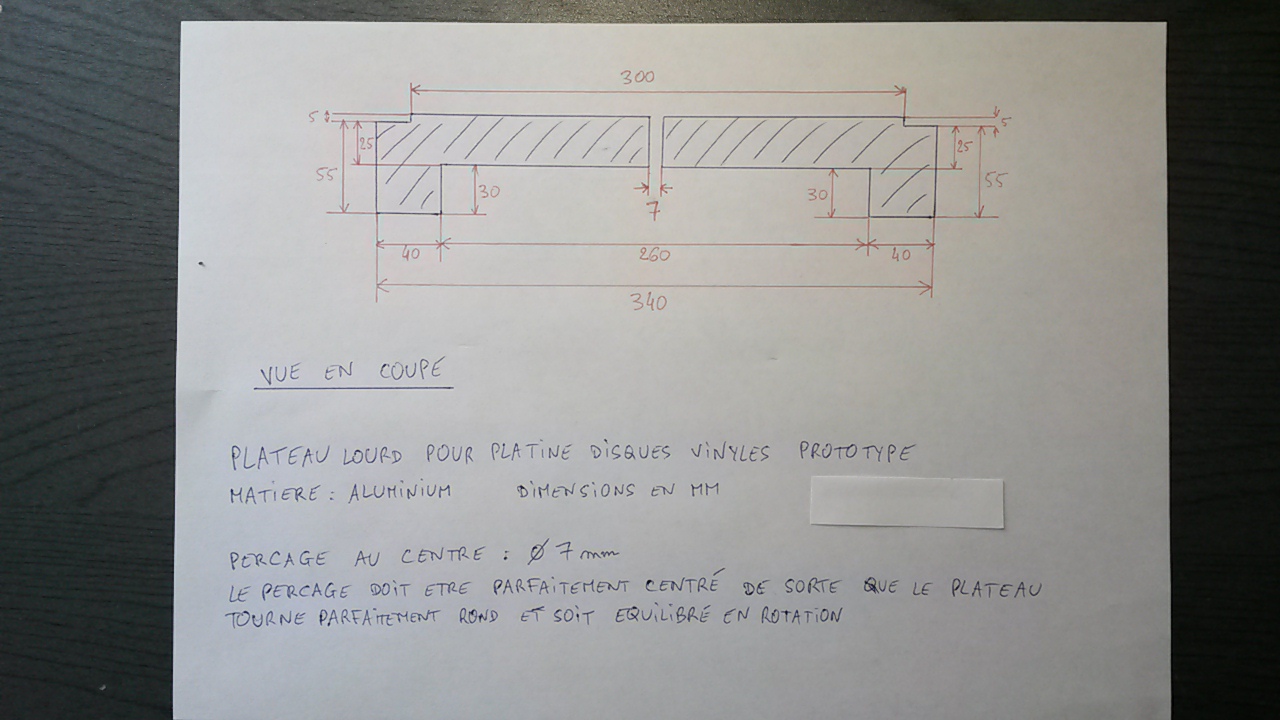 300
5
5
25
25
55
55
30
30
7
40
260
40
340
VUE EN COUPE
PLATEAU LOURD POUR PLATINE DISQUES VINYLES PROTOTYPE
MATIERE : ALUMINIUM DIMENSIONS EN MM
PERCAGE AU CENTRE : Ø 7 mm
LE PERCAGE DOIT ETRE PARFAITEMENT CENTRÉ DE SORTE QUE LE PLATEAU
TOURNE PARFAITEMENT ROND ET SOIT EQUILIBRÉ EN ROTATION